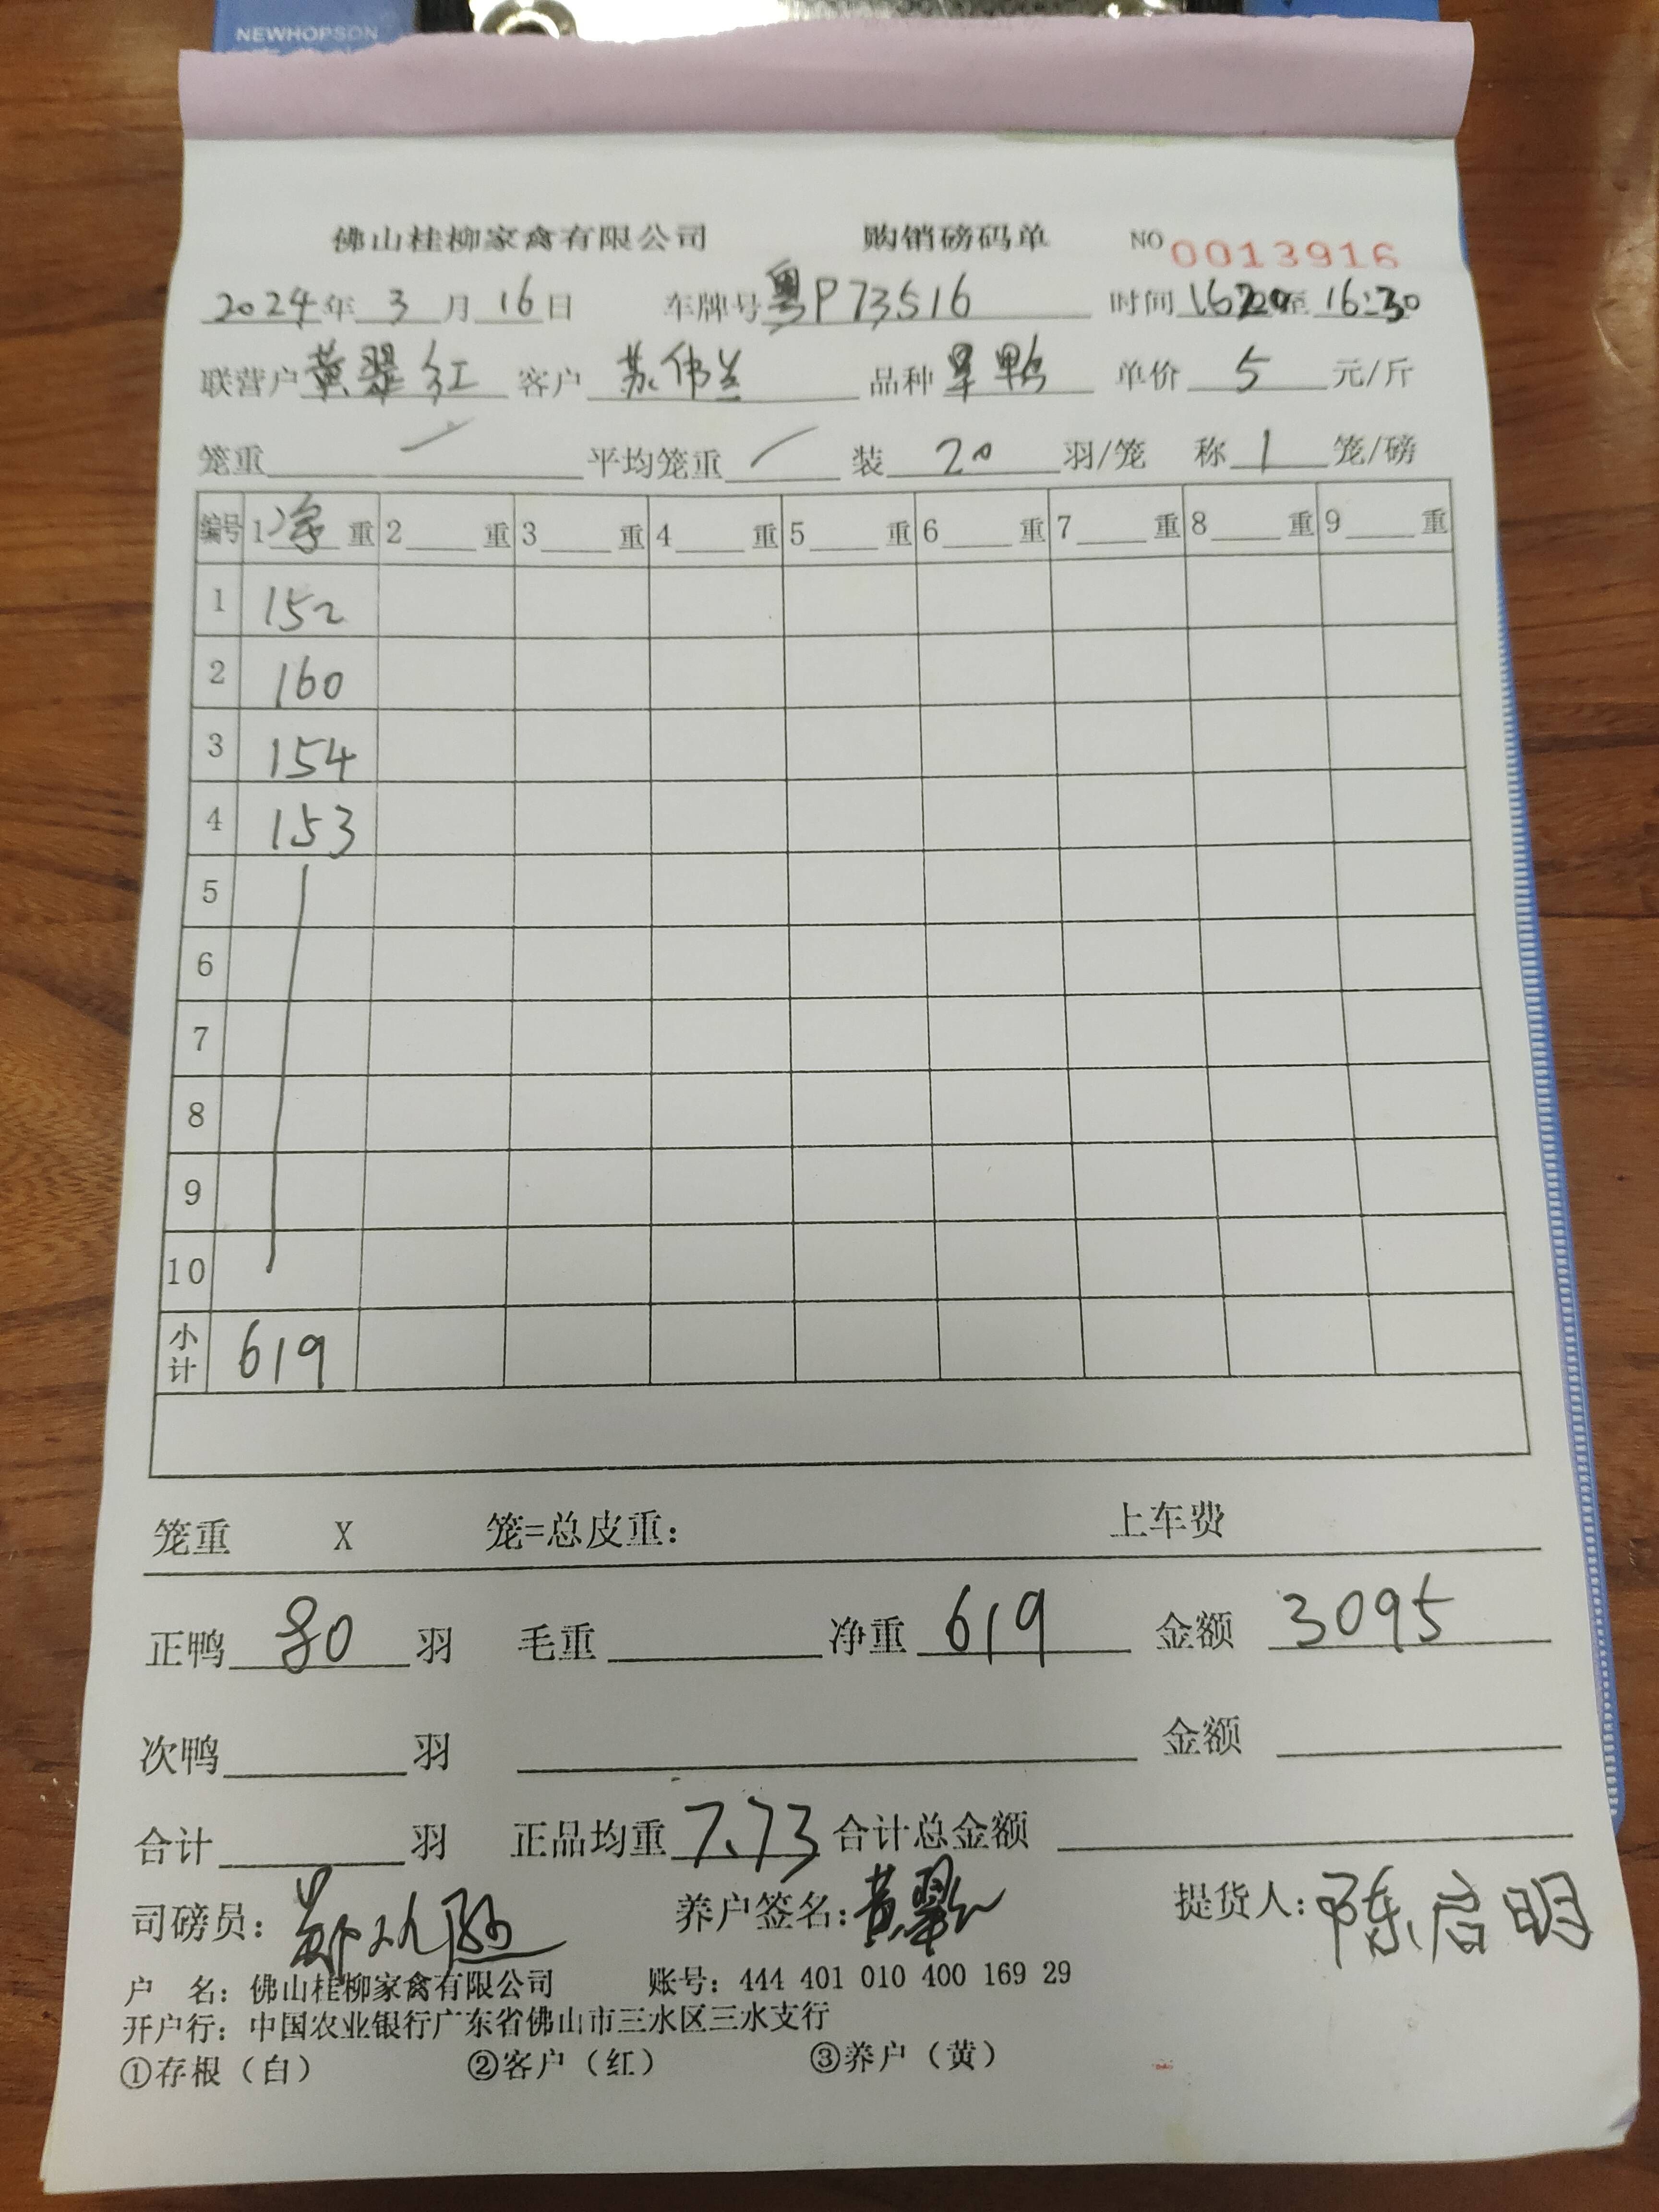 NEWHOPSON
佛山桂柳家禽有限公司 购销磅码单 NO 0013916
2024年 3月 16日 车牌号 粤P73516 时间 16:20至 16:30
联营户 黄翠红 客户 苏伟兰 品种 旱鸭 单价 5 元/斤
笼重 平均笼重 装 20 羽/笼 称 1 笼/磅
编号 1 净 重 2 重 3 重 4 重 5 重 6 重 7 重 8 重 9 重
1 152
2 160
3 154
4 153
5
6
7
8
9
10
小计 619
笼重 X 笼=总皮重: 上车费
正鸭 80 羽 毛重 净重 619 金额 3095
次鸭 羽 金额
合计 羽 正品均重 7.73 合计总金额
司磅员: 养户签名: 黄翠红 提货人: 陈启明
户 名: 佛山桂柳家禽有限公司 账号: 444 401 010 400 169 29
开户行: 中国农业银行广东省佛山市三水区三水支行
①存根（白） ②客户（红） ③养户（黄）